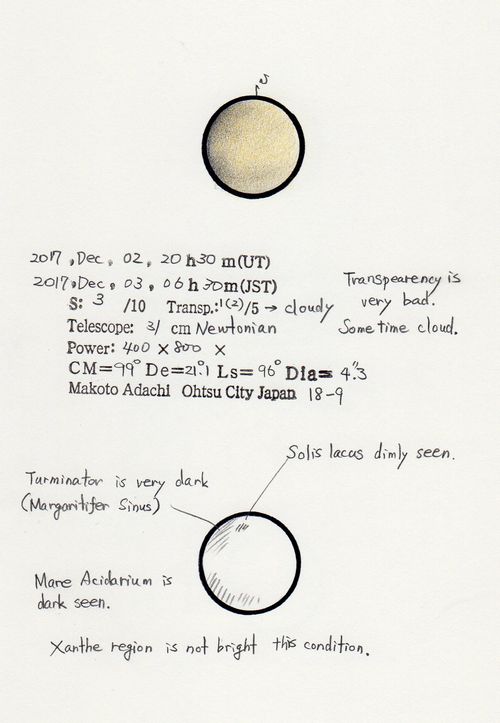 S
2017, Dec, 02, 20 h 30 m (UT)
2017, Dec, 03, 06 h 30 m (JST)
S: 3 /10 Transp.: 1(2)/5 → cloudy
Telescope: 31 cm Newtonian
Power: 400 × 800 ×
CM=99° De=21°.1 Ls=96° Dia=4".3
Makoto Adachi Ohtsu City Japan 18-9
Transpearency is
very bad.
Some time cloud.
Solis lacus dimly seen.
Turminator is very dark
(Margaritifer Sinus)
Mare Acidarium is
dark seen.
Xanthe region is not bright this condition.